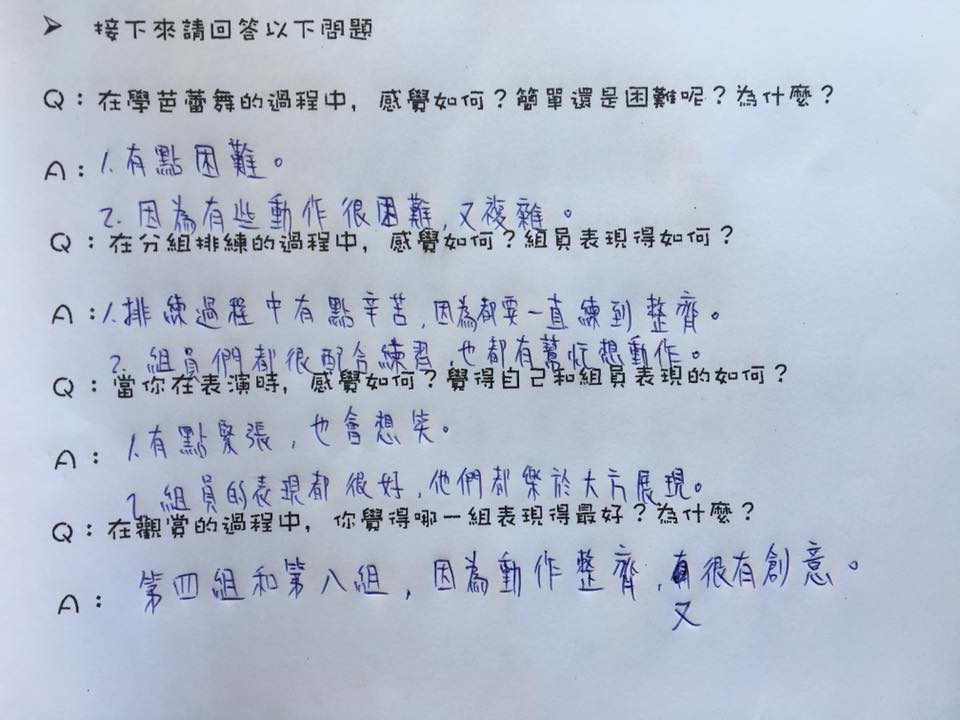 ➤ 接下來請回答以下問題
Q：在學芭蕾舞的過程中，感覺如何？簡單還是困難呢？為什麼？
A：1.有點困難。
2.因為有些動作很困難，又複雜。
Q：在分組排練的過程中，感覺如何？組員表現得如何？
A：1.排練過程中有點辛苦，因為都要一直練到整齊。
2.組員們都很配合練習，也都有幫忙想動作。
Q：當你在表演時，感覺如何？覺得自己和組員表現的如何？
A：1.有點緊張，也會想笑。
2.組員的表現都很好，他們都樂於大方展現。
Q：在觀賞的過程中，你覺得哪一組表現得最好？為什麼？
A：第四組和第八組，因為動作整齊，又很有創意。